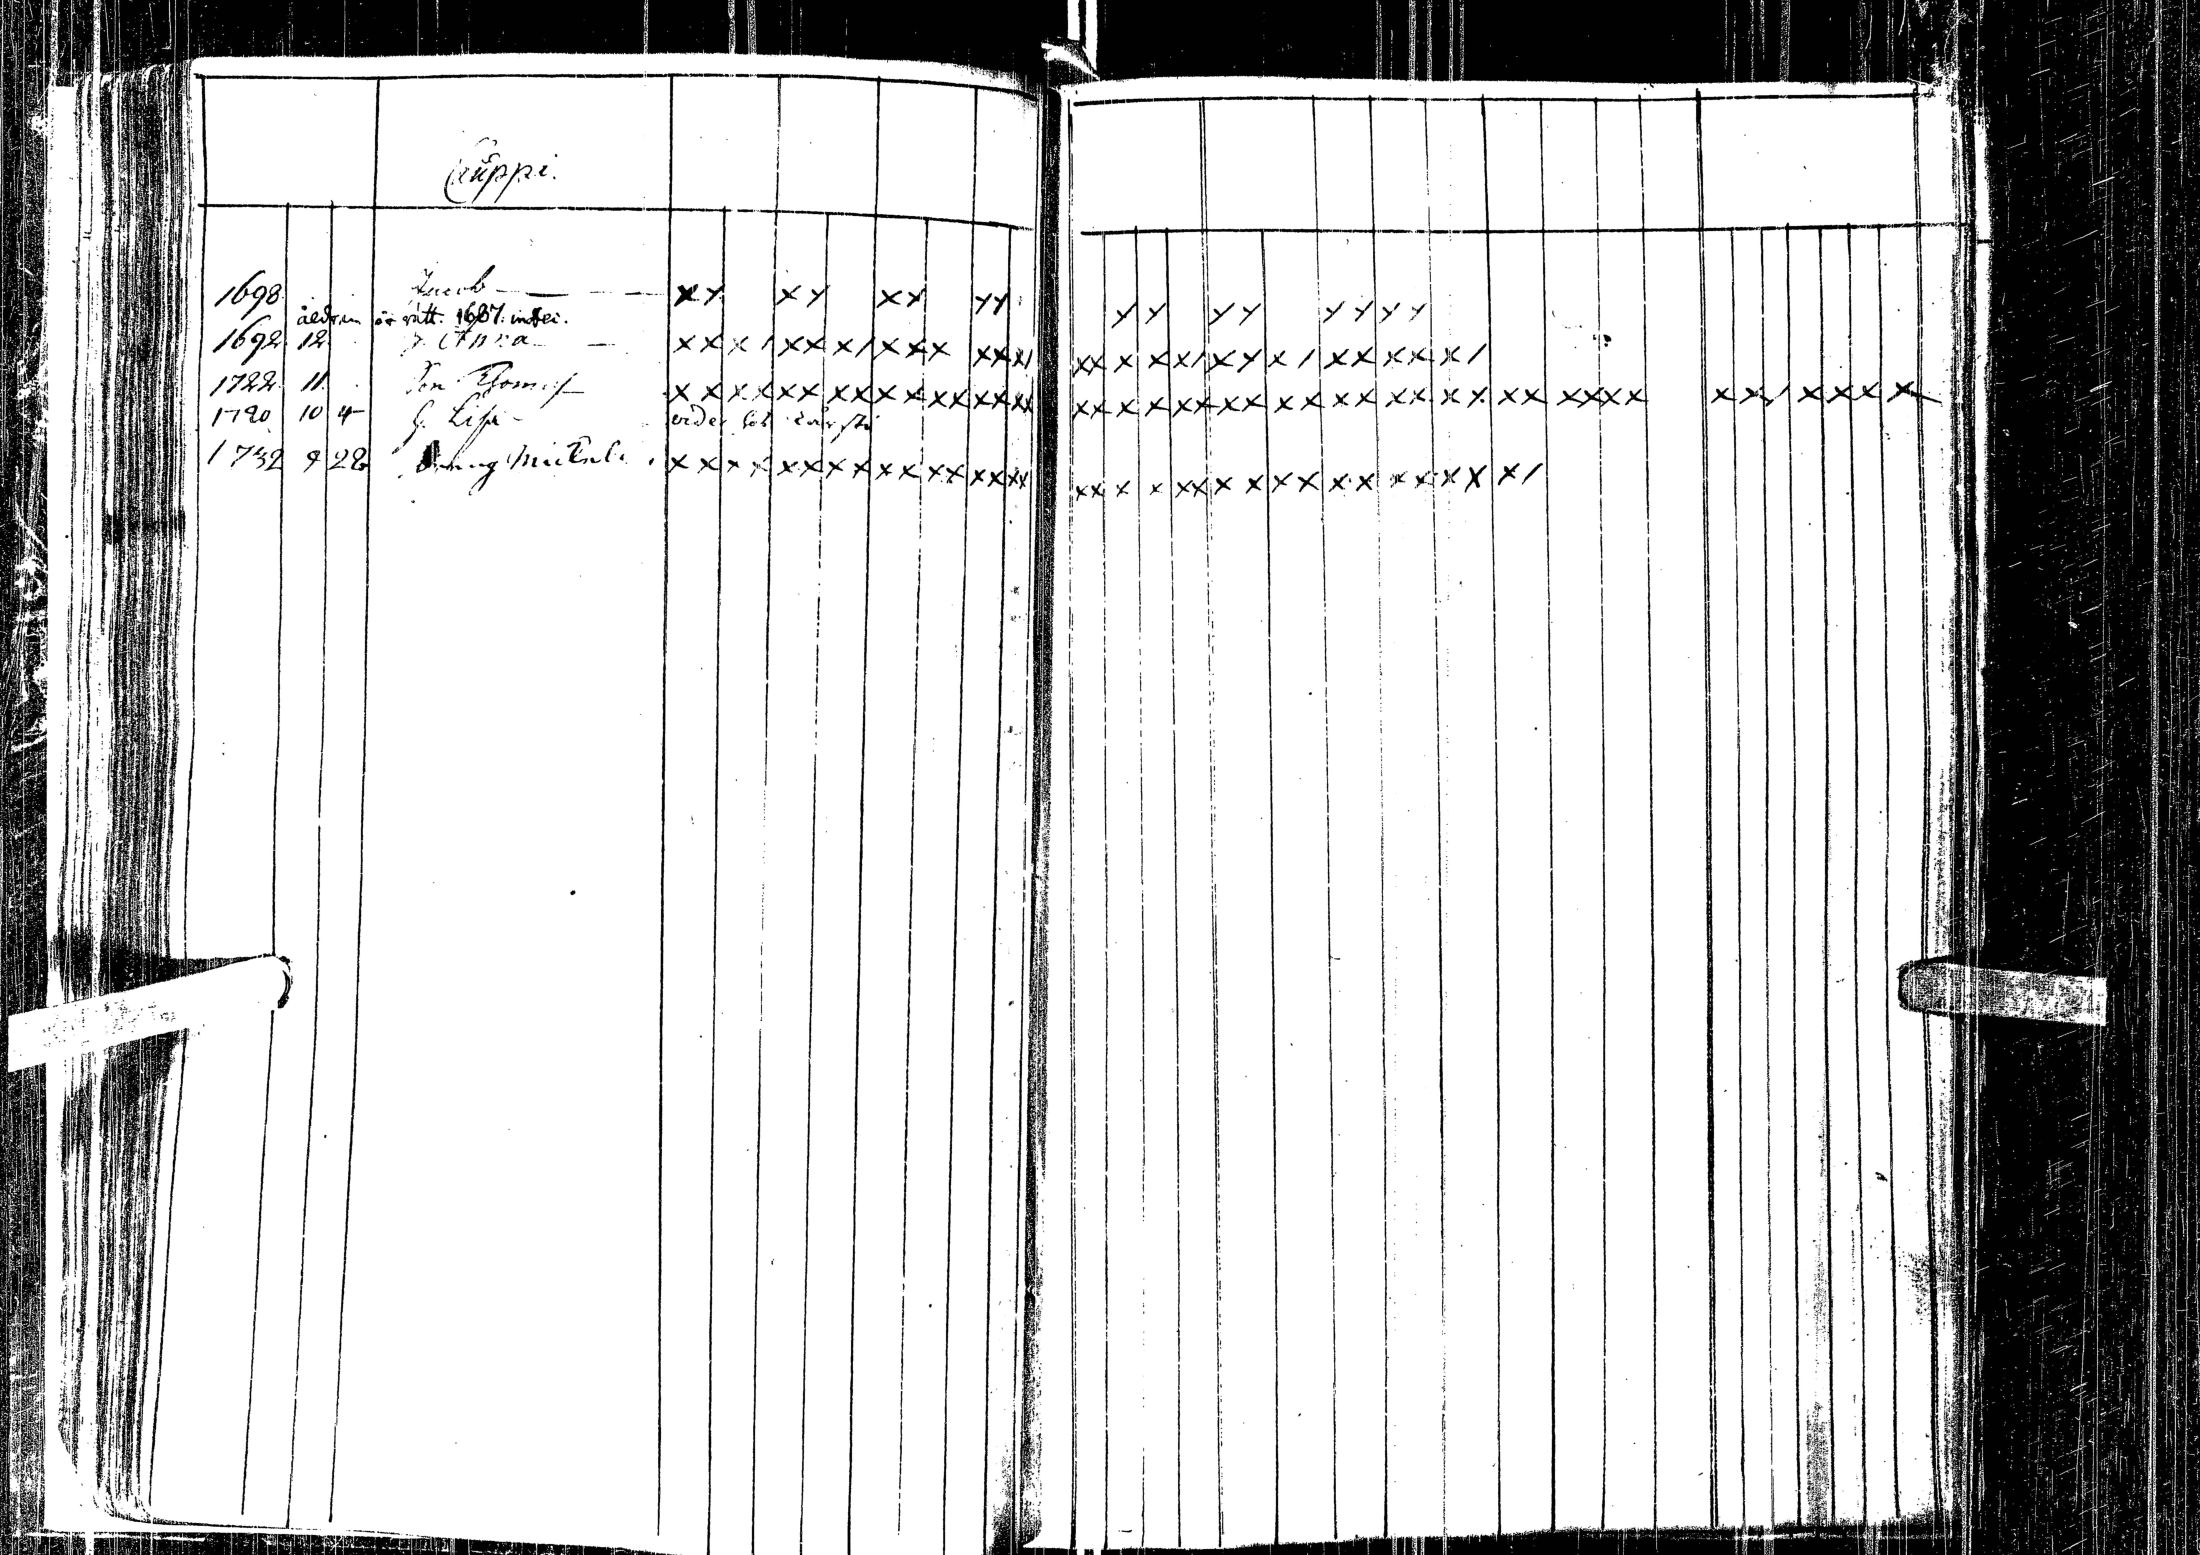 Cauppi.
1698 Jacob — — — XY XY XY YY YY YY YYYY
åldren är rätt. 1687. in
1692 12 h. Anna — XXX/ XXX/ XXX XXX/ XX X XX/ XYX/ XXXXX/
1722 11. Son Thomas XXXX XXXX XXXX XXXX XX X X XX XX XX XX XX XX XX XXXX XX/ XXXX
1720 10 4 h. Lisa
1732 9 28 Dreng Mickel XXXX XXXX XXXX XXXX XX X X XX XX XX XX XX XX X/